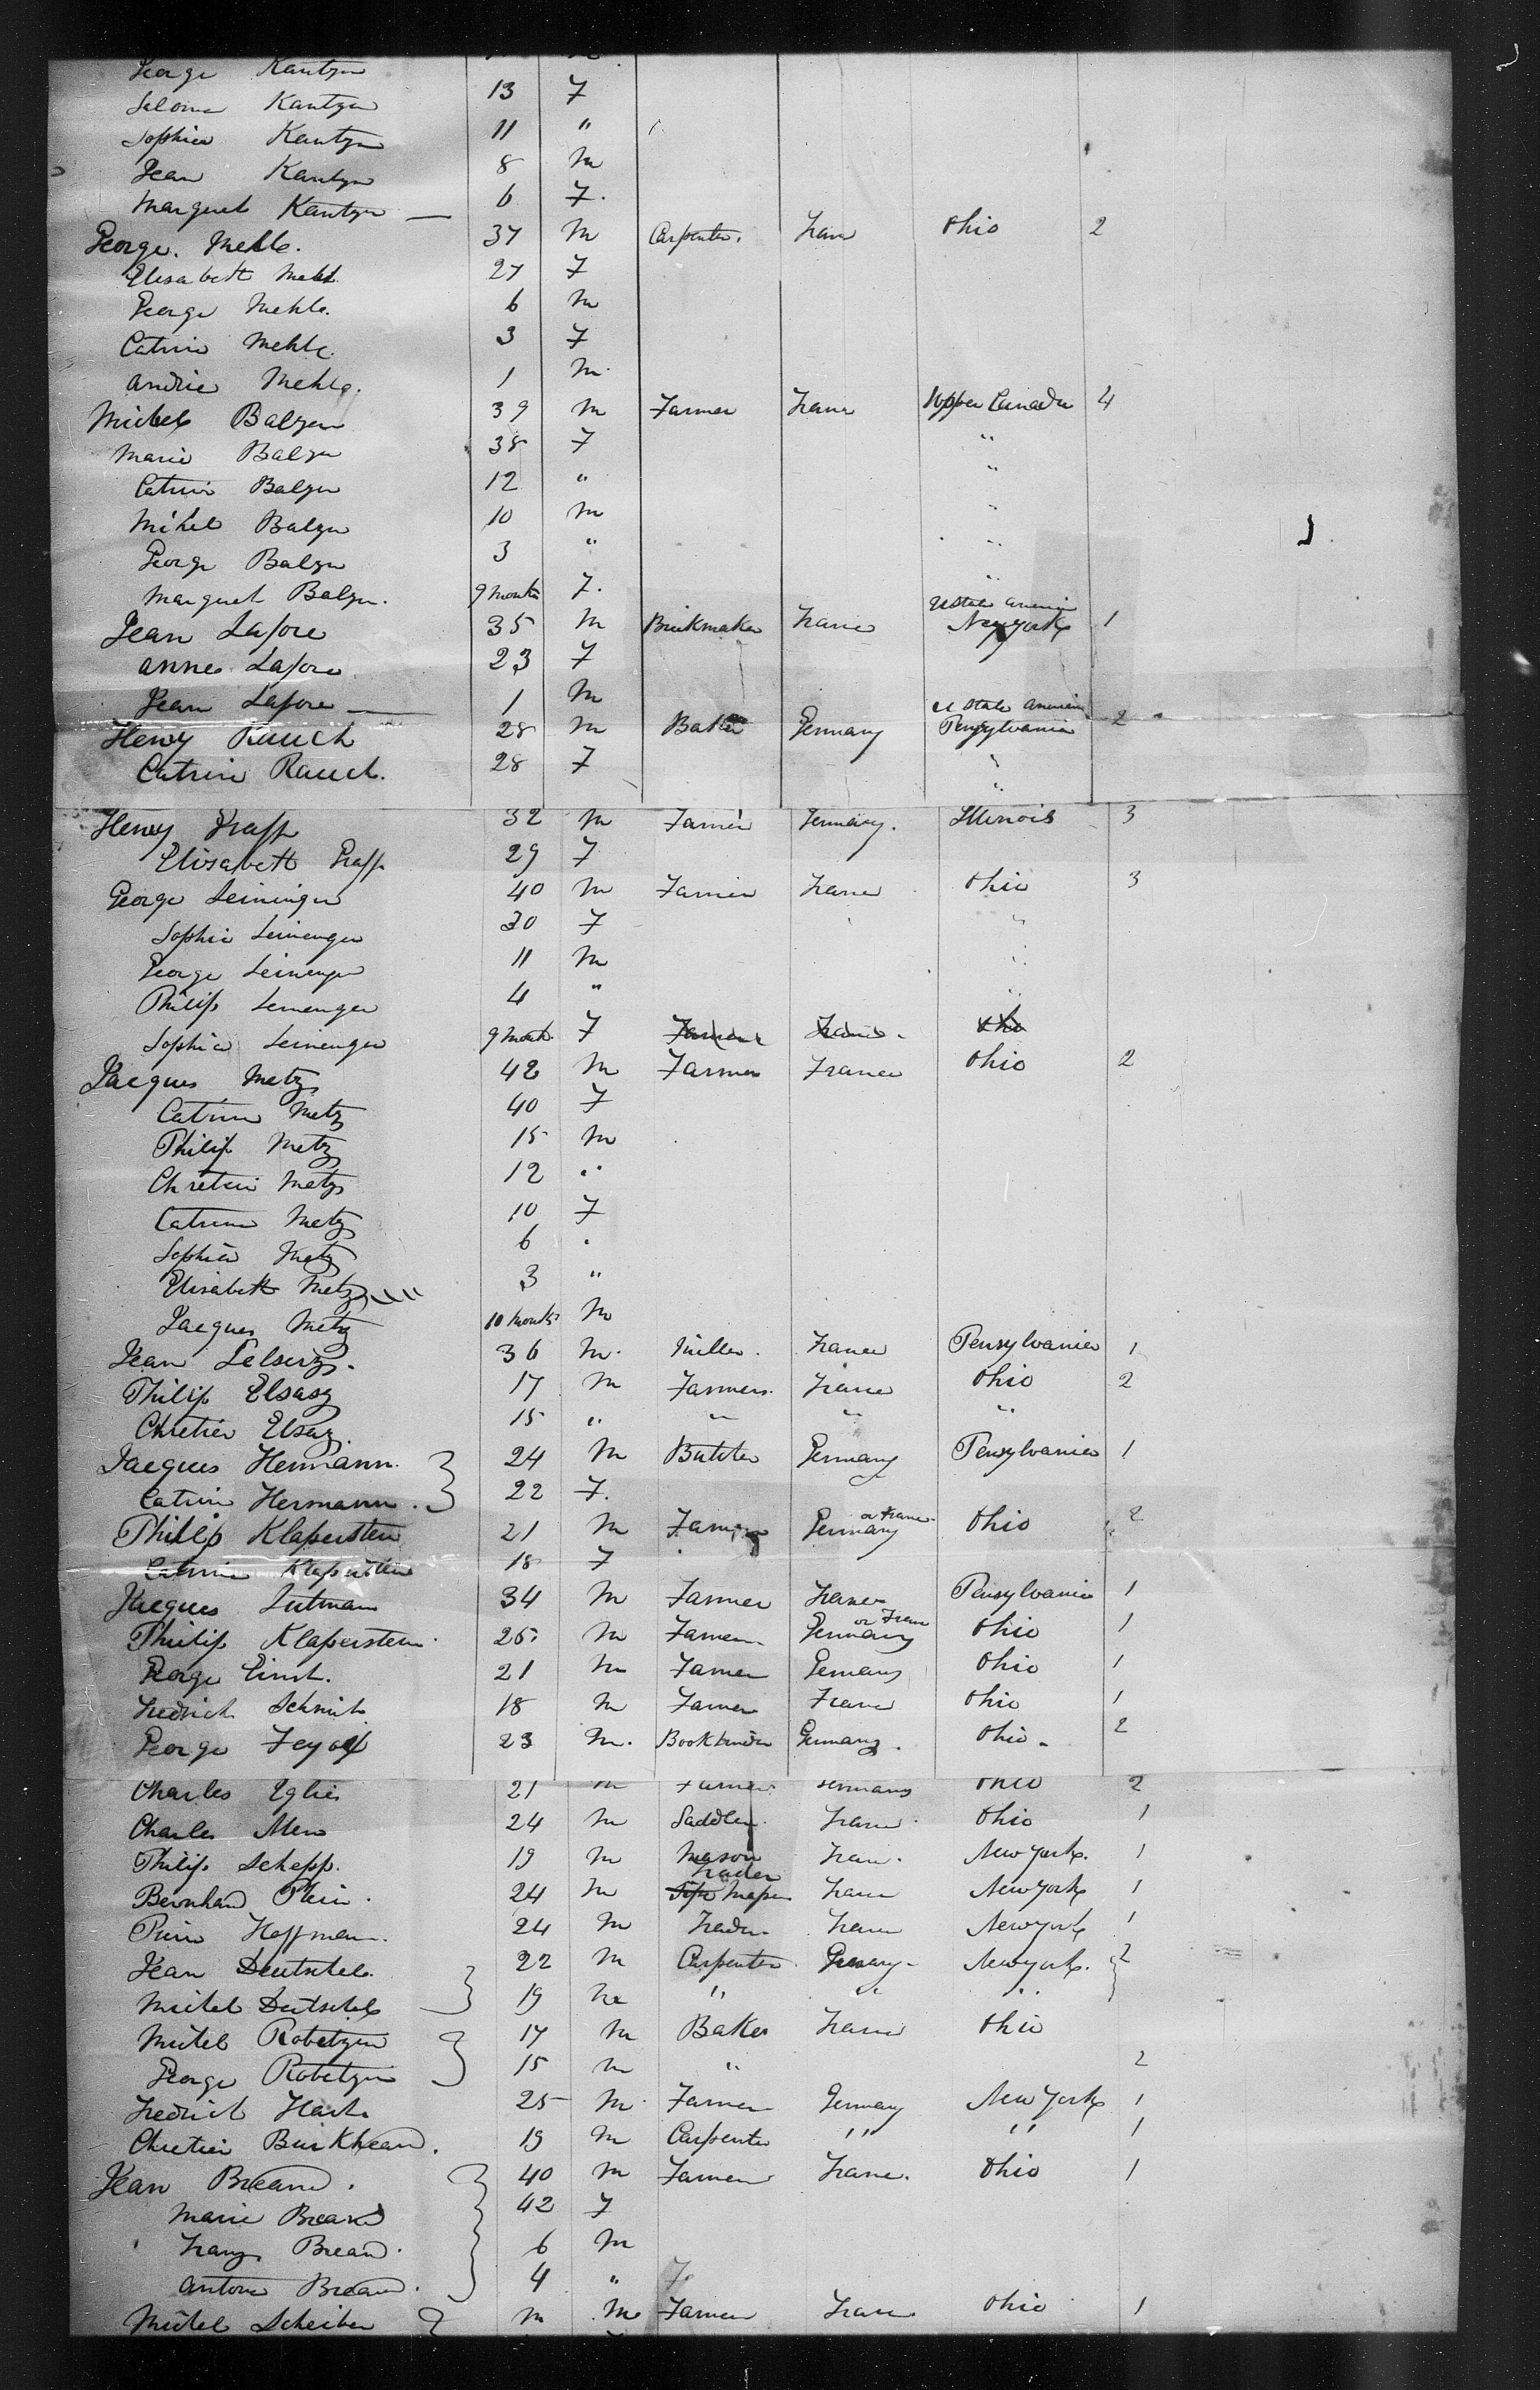 George Kantzn
Salome Kantzn 13 F
Sophia Kantzn 11 "
Jean Kantzn 8 M
Marguet Kantzn — 6 F.
George. Mehle. 37 M Carpenter. France Ohio 2
Elisabett Mehle 27 F
George Mehle. 6 M
Catrine Mehle. 3 F
Andrie Mehle. 1 M.
Michel Balzer 39 M Farmer France Upper Canada 4
Marie Balzer 38 F "
Catrin Balzer 12 " "
Mihel Balzer 10 M "
George Balzer 3 " "
Marguet Balzer. 9 Months F. "
Jean Lafore 35 M Brickmaker France Newyork 1
Anne Lafore 23 F
Jean Lafore — 1 M
Henry Rauch 28 M Baker Germany Pensylvania 2
Catrine Rauch. 28 F "
Henry Graff 32 M Farmer Germany. Illinois 3
Elisabett Graff 29 F
George Leininger 40 M Farmer France Ohio 3
Sophie Leinenger 30 F "
George Leinenger 11 M "
Philip Leinenger 4 " "
Sophia Leinenger 9 Month. F Farmer France. Ohio
Jacques Metz 42 M Farmer France Ohio 2
Catrine Metz 40 F
Philip Metz 15 M
Chretien Metz 12 "
Catrine Metz 10 F
Sophia Metz 6 "
Elisabett Metz 3 "
Jacques Metz 10 Months M
Jean Lelserz. 36 M. Miller. France Pensylvania 1
Philip Elsasz 17 M Farmers. France Ohio 2
Chretien Elsasz. 15 " " " "
Jacques Hermann. 24 M Butcher Germany Pensylvania 1
Catrin Hermann. 22 F.
Philip Klaperstein 21 M Farmer Germany or France Ohio 2
Catrine Klaperstein 18 F
Jacques Lutman 34 M Farmer France Pensylvania 1
Philip Klaperstein. 25. M Farmer Germany or France Ohio 1
George Ernst. 21 M Farmer Germany Ohio 1
Fredrich Schmit 18 M Farmer France Ohio 1
George 23 M. Bookbinder Germany. Ohio. 2
Charles Eglie 21 M Farmer Germany Ohio 2
Charles 24 M Saddler. France. Ohio 1
Philip Schepp. 19 M Mason France. New York. 1
Trader
Bernhard 24 M France New York 1
Pierre Hoffman. 24 M Trader France New york 1
Jean Deutschel. 22 M Carpenter Germany New york. 2
Michel Deutschel 19 M " " "
Michel Robetzer 17 M Baker France Ohio
George Robetzer 15 M " 2
Fredrich 25 M. Farmer Germany New York 1
Chretien Burkheard. 19 M Carpenter " " 1
Jean Breand. 40 M Farmer France. Ohio 1
Marie Breand 42 F
Franz Breand. 6 M
Antoine Breand. 4 " F
Michel Scheiber M M Farmer France Ohio 1